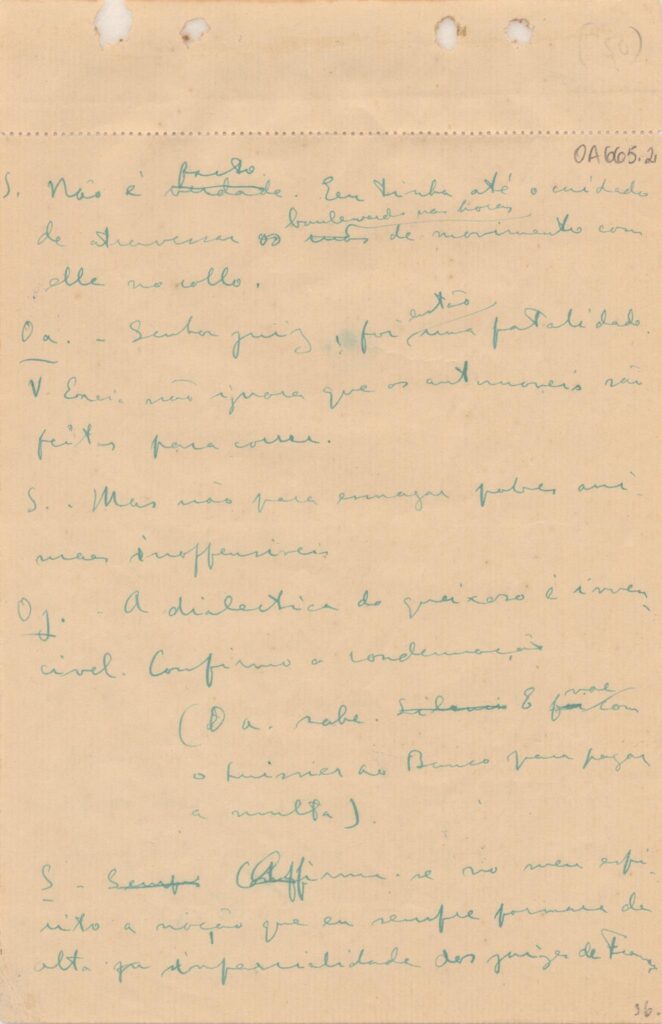 (20)
OA665.2
S. Não é verdade. Eu tinha até o cuidado
boulevards nas horas
de atravessar os de movimento com
elle no collo.
O a. - Senhor juiz, foi uma fatalidade.
V. Excia não ignora que os automoveis são
feitos para correr.
S. - Mas não para esmagar pobres ani-
maes inoffensiveis
O j. - A dialectica do queixoso é inven-
civel. Confirmo a condemnação
(O a. sahe. E vae com
o huissier ao Banco para pagar
a multa).
S - Affirma-se no meu espi-
rito a noção que eu sempre formara da
alta imparcialidade dos juizes de França
36.